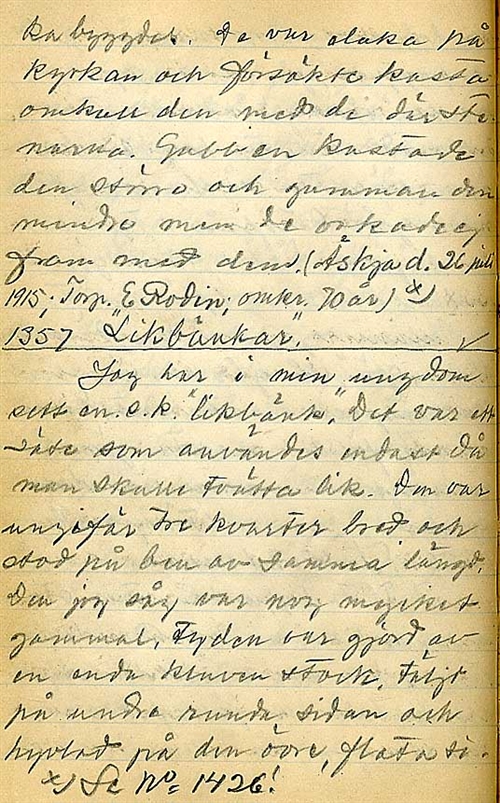 ka byggdes. De var elaka på
kyrkan och försökte kasta
omkull den med de där ste-
narna. Gubben kastade
den större och gumman den
mindre men de orkade ej
fram med dem. (Åskja d. 26 juli
1915; Torp. E Rodin; omkr. 70 år) x)
1357 "Likbänkar".
Jag har i min ungdom
sett en s.k. "likbänk". Det var ett
säte som användes endast då
man skulle tvätta lik. Den var
ungefär tre kvarter bred och
stod på ben av samma längd.
Den jag såg var nog mycket
gammal, ty den var gjord av
en enda kluven stock, täljd
på undre runda sidan och
hyvlad på den övre, flata si-
x) Se No 1426!